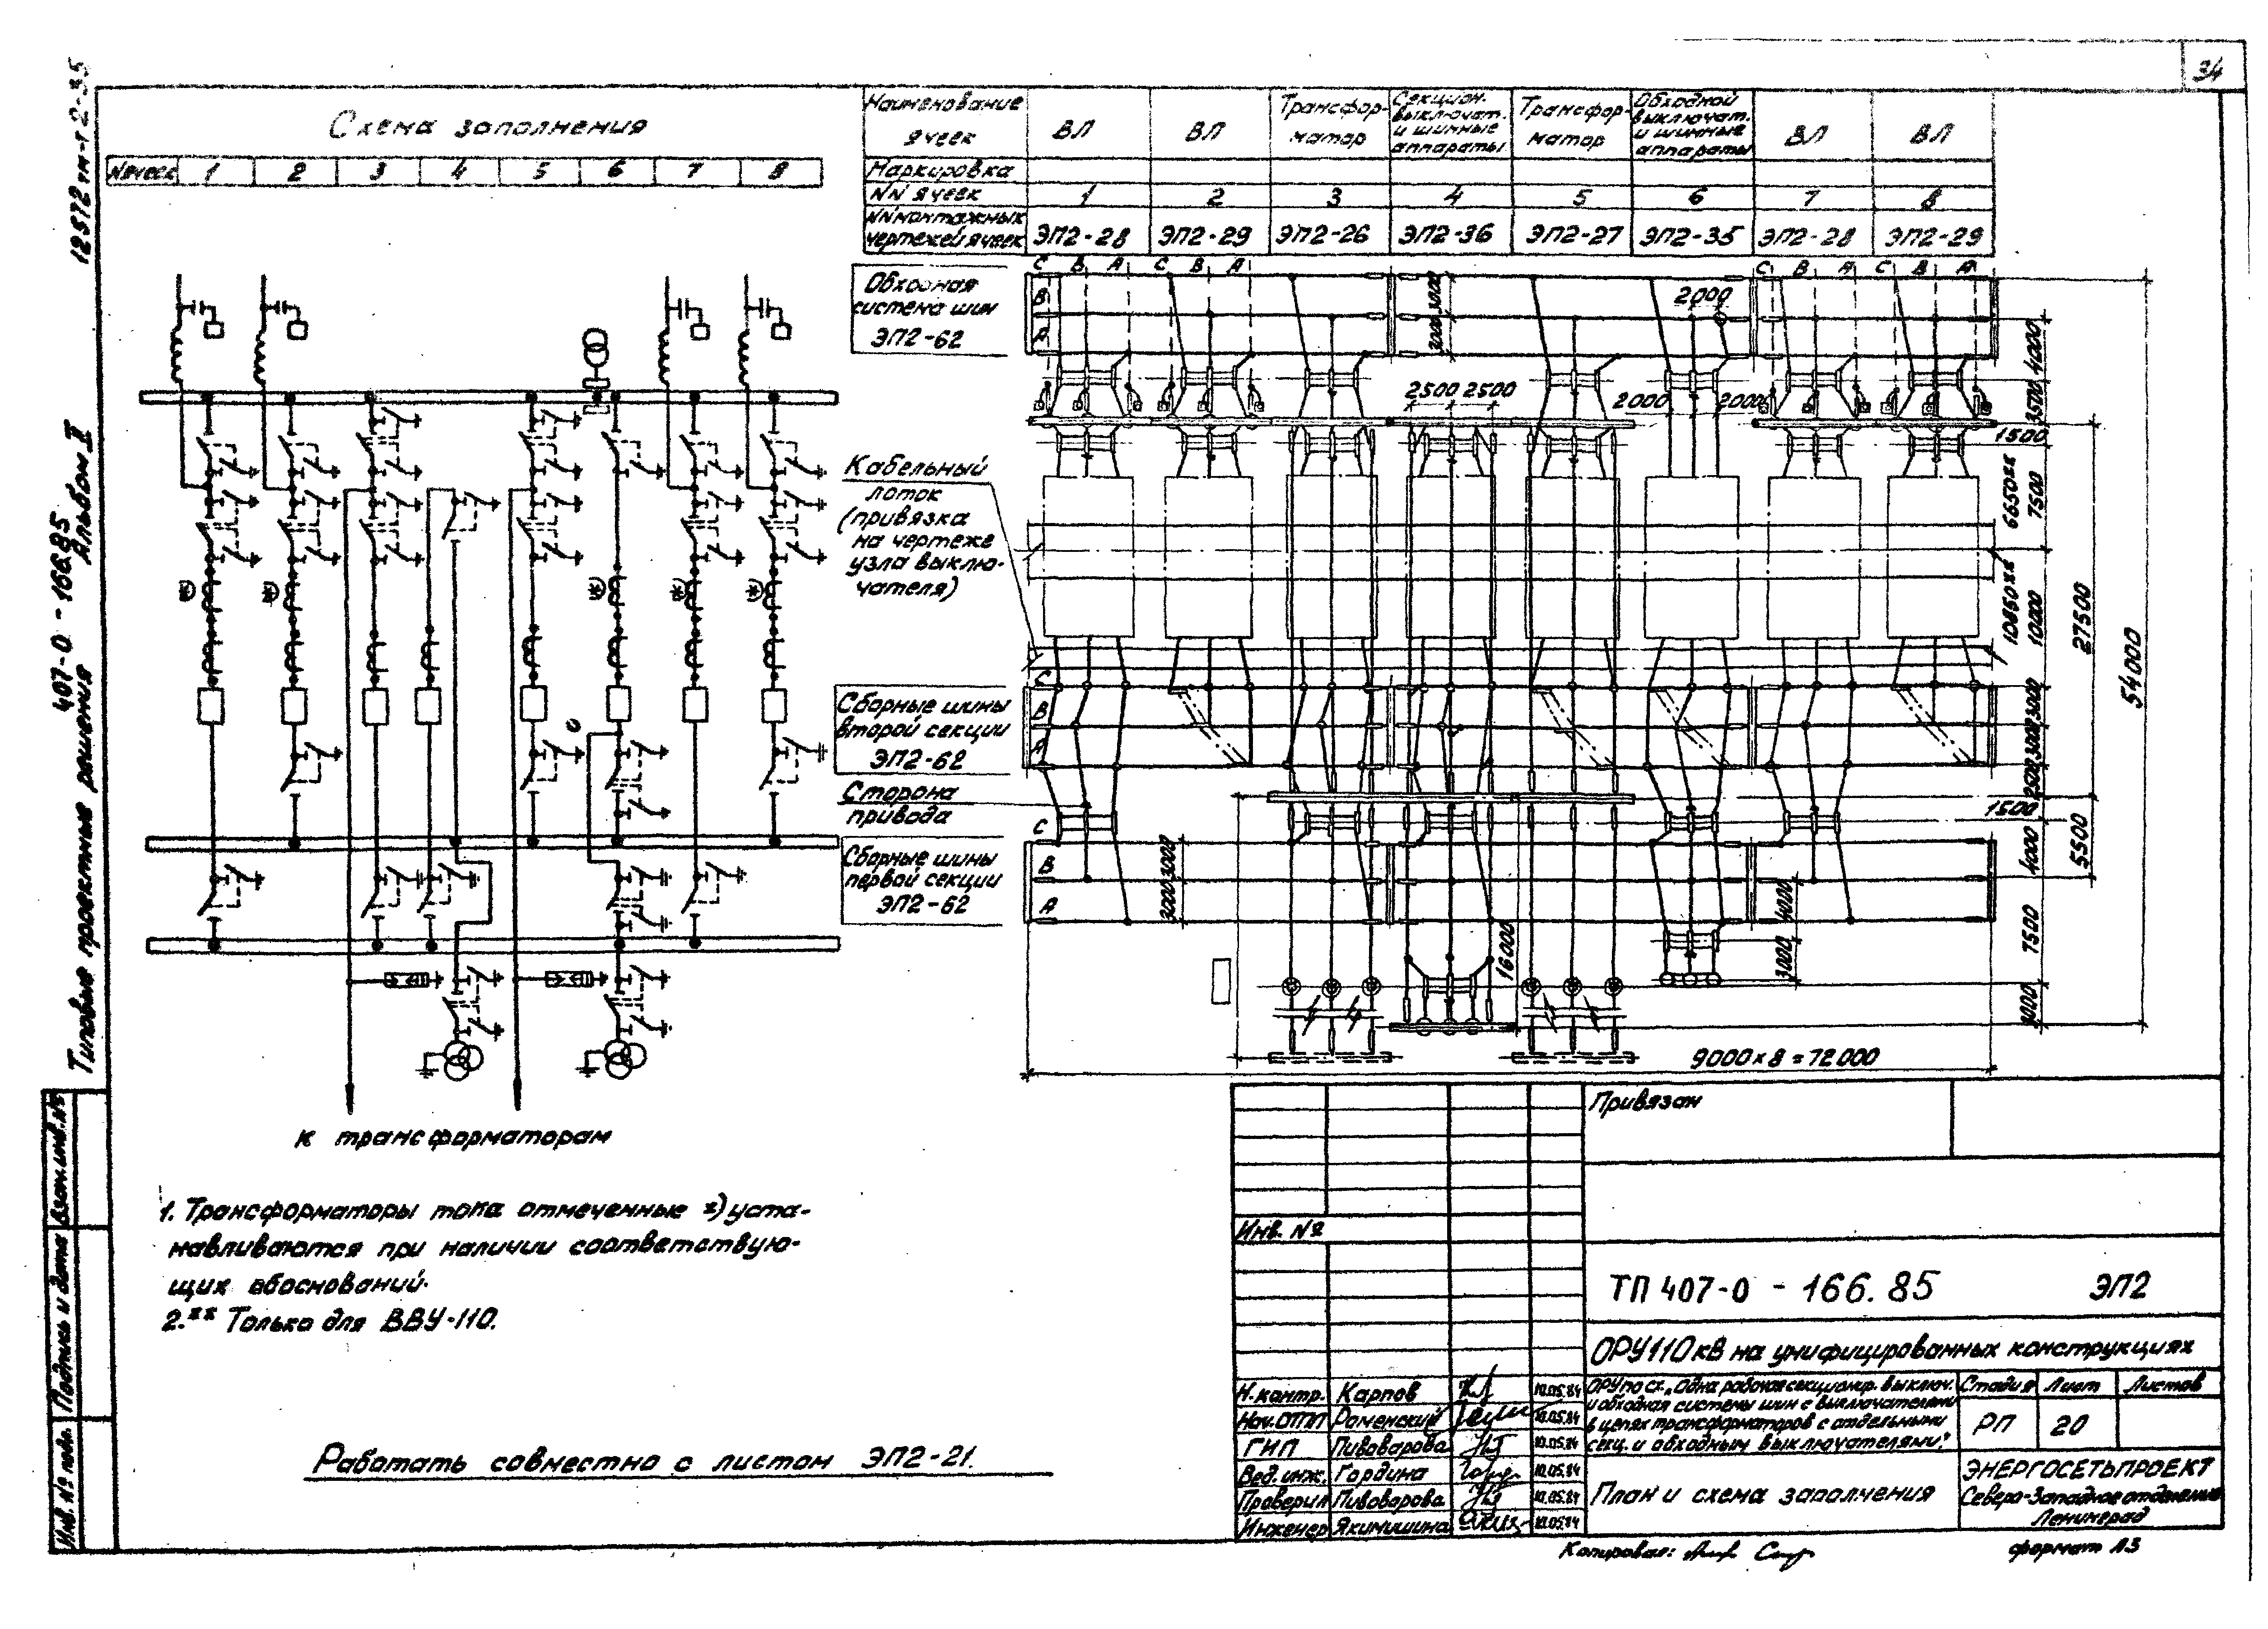 34
12572тм-т2-35
Типовые проектные решения
407-0-166.85
Альбом II
Схема заполнения
N ячеек 1 2 3 4 5 6 7 8
Наименование ячеек
ВЛ
ВЛ
Трансфор-
матор
Секцион.
выключат.
и шинные
аппараты
Трансфор-
матор
Обходной
выключат.
и шинные
аппараты
ВЛ
ВЛ
Маркировка
NN ячеек 1 2 3 4 5 6 7 8
NN монтажных
чертежей ячеек
ЭП2-28 ЭП2-29 ЭП2-26 ЭП2-36 ЭП2-27 ЭП2-35 ЭП2-28 ЭП2-29
Обходная
система шин
ЭП2-62
C B A C B A C B A C B A
B
A
3000 3000
2000
2500 2500
2000 2000
4000
3500
1500
6650**
7500
10850**
11000
27500
54000
Кабельный
лоток
(привязка
на чертеже
узла выклю-
чателя)
Сборные шины
второй секции
ЭП2-62
C
B
A
3000
3000
2500
1500
Сторона
привода
Сборные шины
первой секции
ЭП2-62
C
B
A
3000 3000
4000
5500
7500
3000
16000
4000
3000
9000 x 8 = 72000
*) *) *) *) *)
К трансформаторам
1. Трансформаторы тока отмеченные *) уста-
навливаются при наличии соответствую-
щих обоснований.
2.** Только для ВВУ-110.
Работать совместно с листом ЭП2-21.
Взам.инв.№
Подпись и дата
Инв.№ подл.
Привязан
Инв. №
ТП 407-0 - 166.85 ЭП2
ОРУ 110 кВ на унифицированных конструкциях
Н.контр. Карпов 10.05.84
Нач.ОТП Роменский 10.05.84
ГИП Пивоварова 10.05.84
Вед.инж. Гордина 10.05.84
Проверил Пивоварова 10.05.84
Инженер Якимишина 10.05.84
ОРУ по сх. „Одна рабочая секционир. выключ.
и обходная системы шин с выключателями
в цепях трансформаторов с отдельными
секц. и обходным выключателями"
Стадия Лист Листов
РП 20
План и схема заполнения
ЭНЕРГОСЕТЬПРОЕКТ
Северо-Западное отделение
Ленинград
Копировал:
формат А3